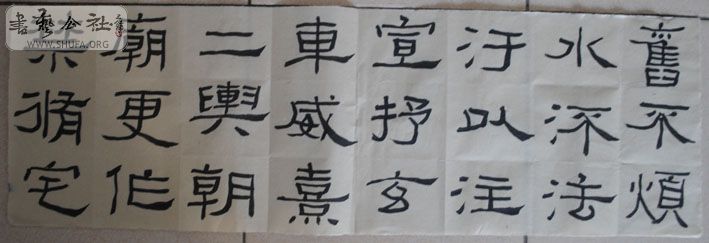 書藝公社
WWW.SHUFA.ORG
脩宅
廟更作
二輿朝
車威熹
宣抒玄
汙以注
水流法
舊不煩